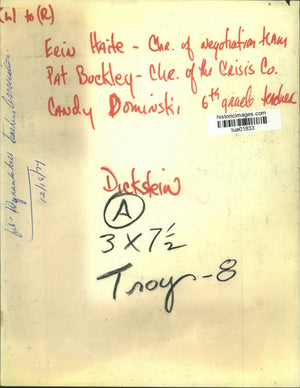 (L) to (R)
Erin Haite - Chr. of Negotiation team
Pat Buckley - Chr. of the Crisis Co.
Candy Dominski 6th grade teacher
historicimages.com
tua01833
Dickstein
A
3 X 7 1/2
Troy - 8
Wyandotte Teachers Association
12/15/71